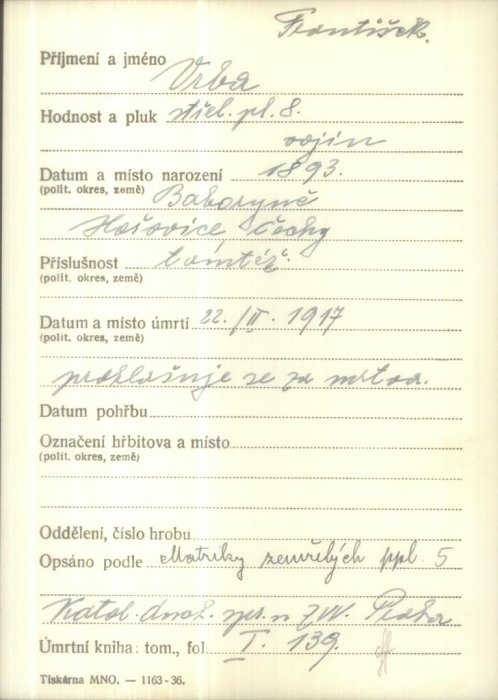 František.
Příjmení a jméno Vrba
Hodnost a pluk střel. pl. 8.
vojín
Datum a místo narození 1893.
(polit. okres, země) Bavoryně
Hořovice Čechy
Příslušnost tamtéž.
(polit. okres, země)
Datum a místo úmrtí 22./II. 1917
(polit. okres, země)
prohlašuje se za mrtva.
Datum pohřbu
Označení hřbitova a místo
(polit. okres, země)
Oddělení, číslo hrobu
Opsáno podle Matriky zemřelých ppl. 5
Katol. duch. Praha
Úmrtní kniha: tom., fol I. 139.
Tiskárna MNO. — 1163-36.